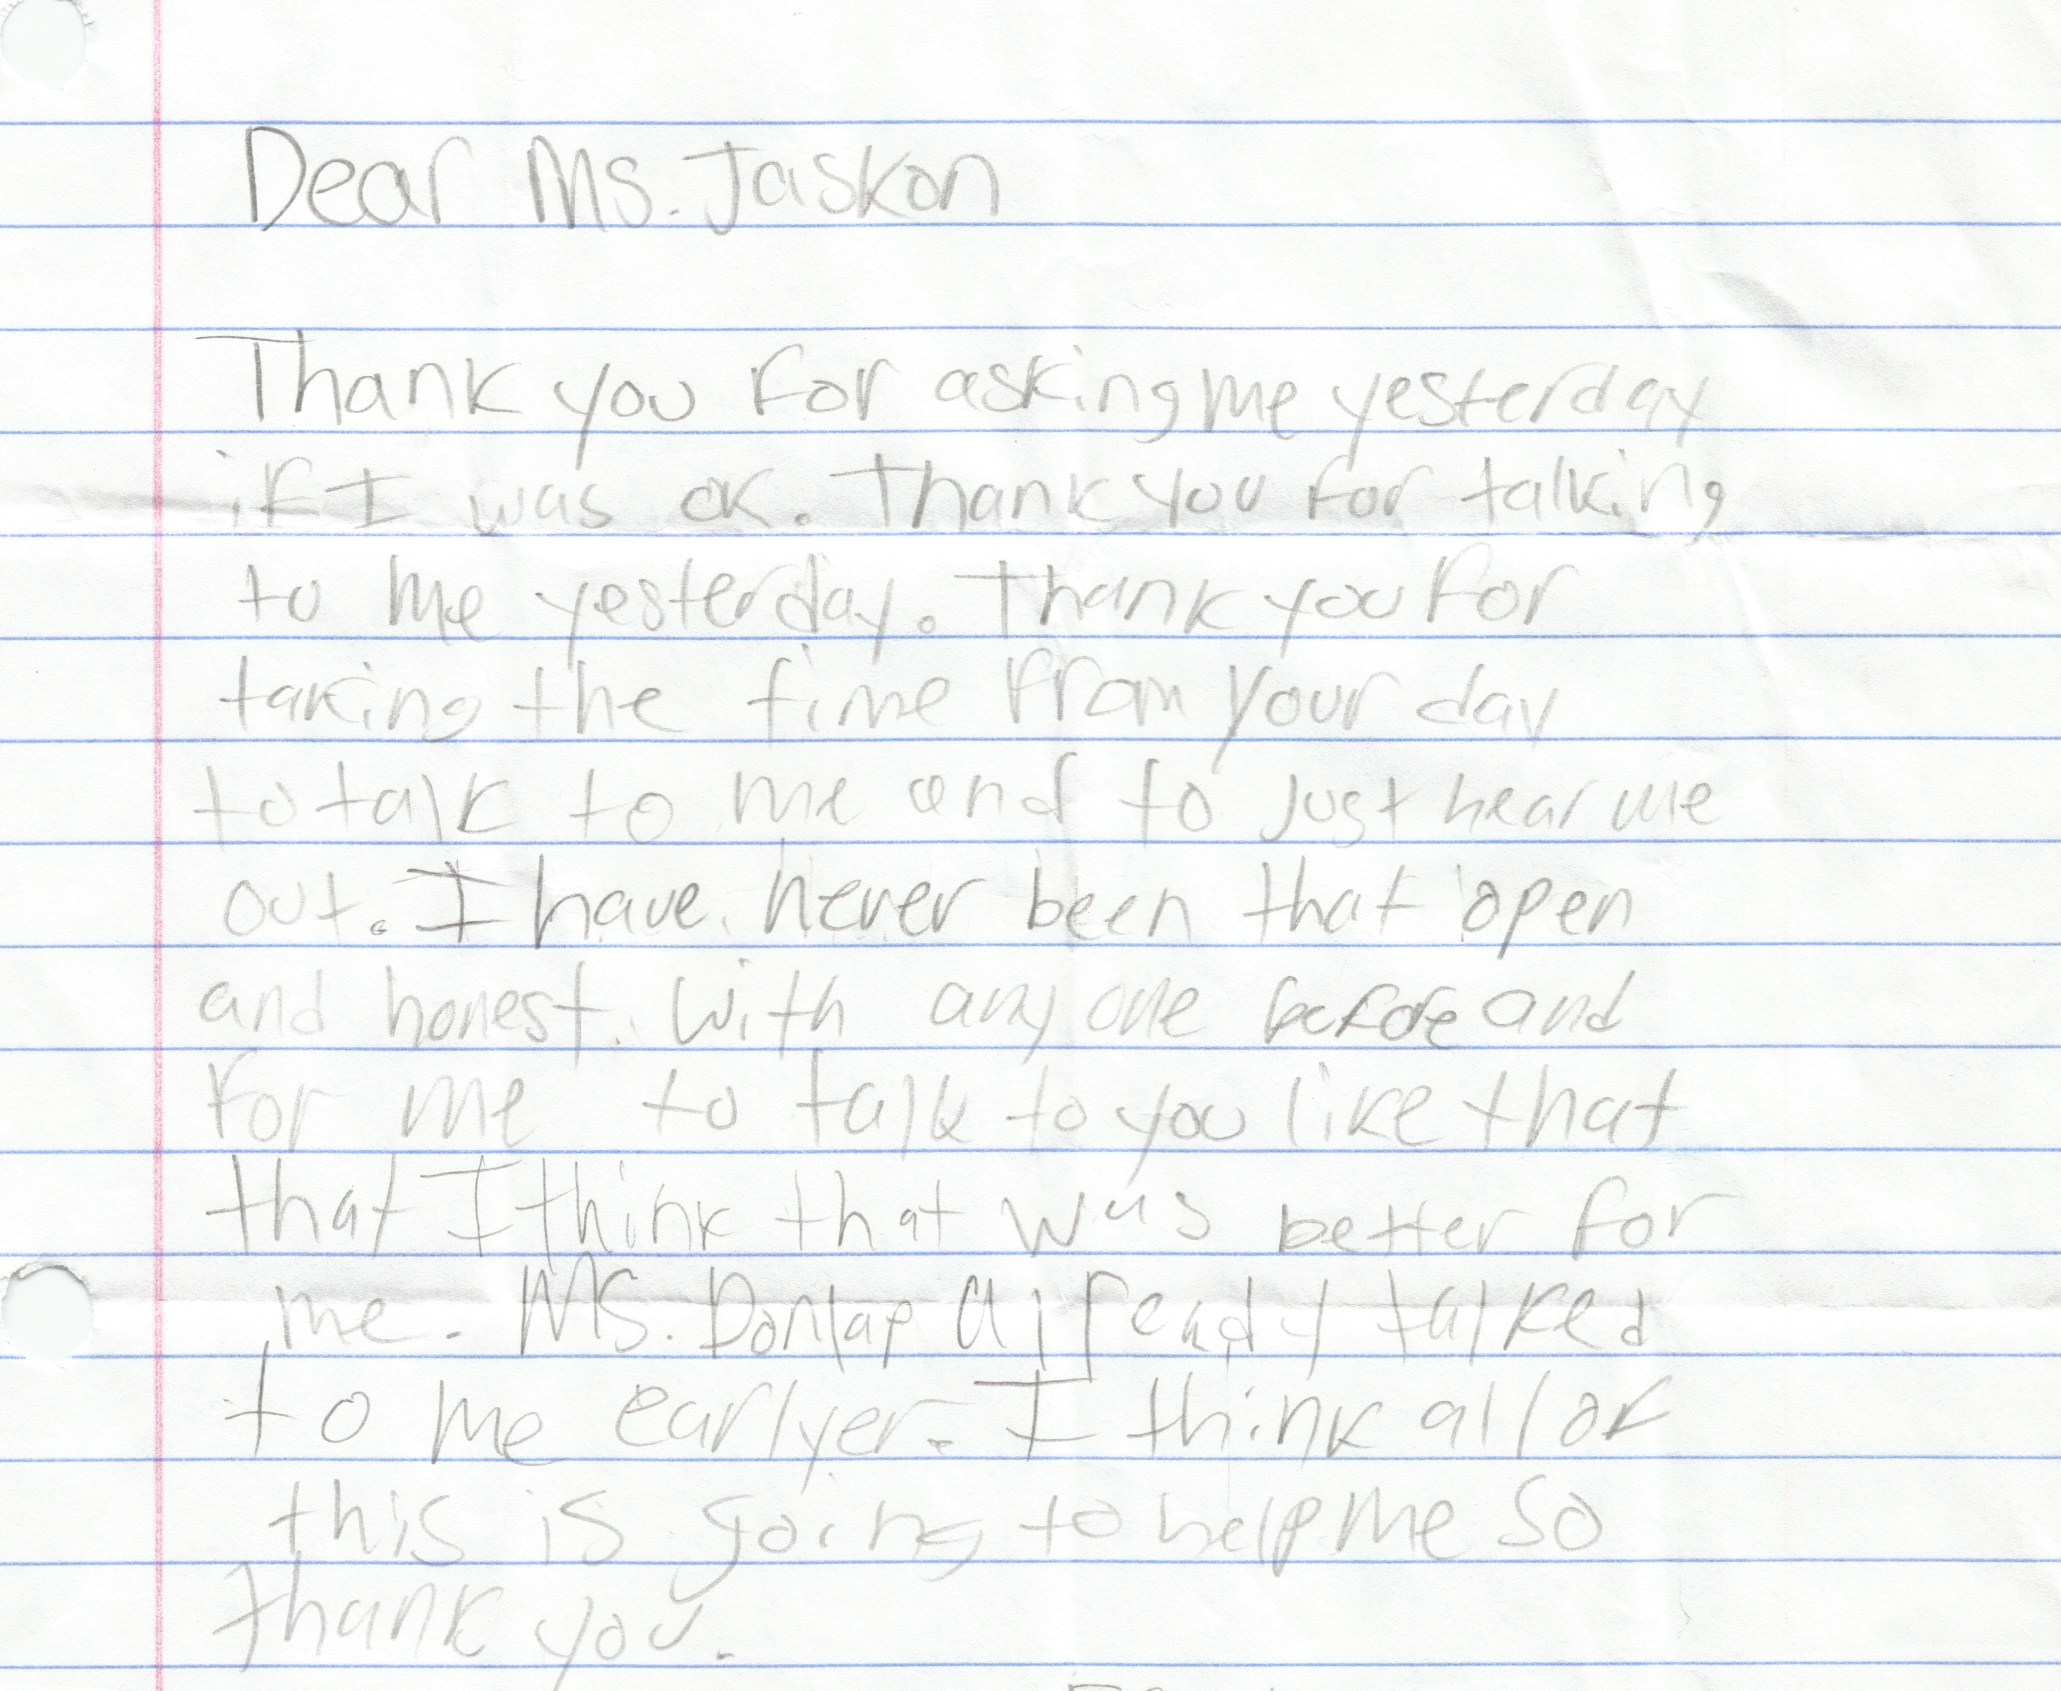 Dear Ms. Jaskon
Thank you for asking me yesterday
if I was ok. Thank you for talking
to me yesterday. Thank you for
taking the time from your day
to talk to me and to just hear me
out. I have never been that open
and honest with anyone before and
for me to talk to you like that
that I think that was better for
me. Ms. Donlap already talked
to me earlyer. I think all of
this is going to help me so
thank you.